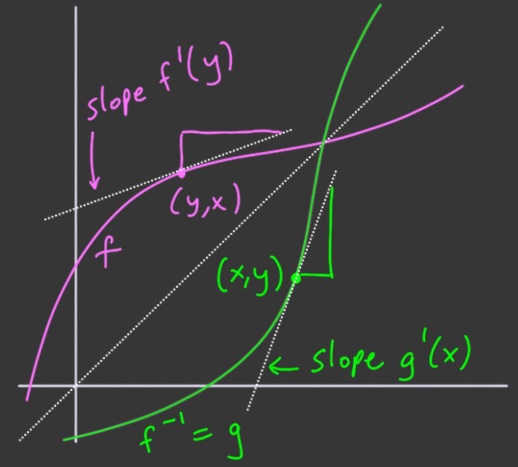 slope f'(y)
(y,x)
f
(x,y)
slope g'(x)
f⁻¹ = g